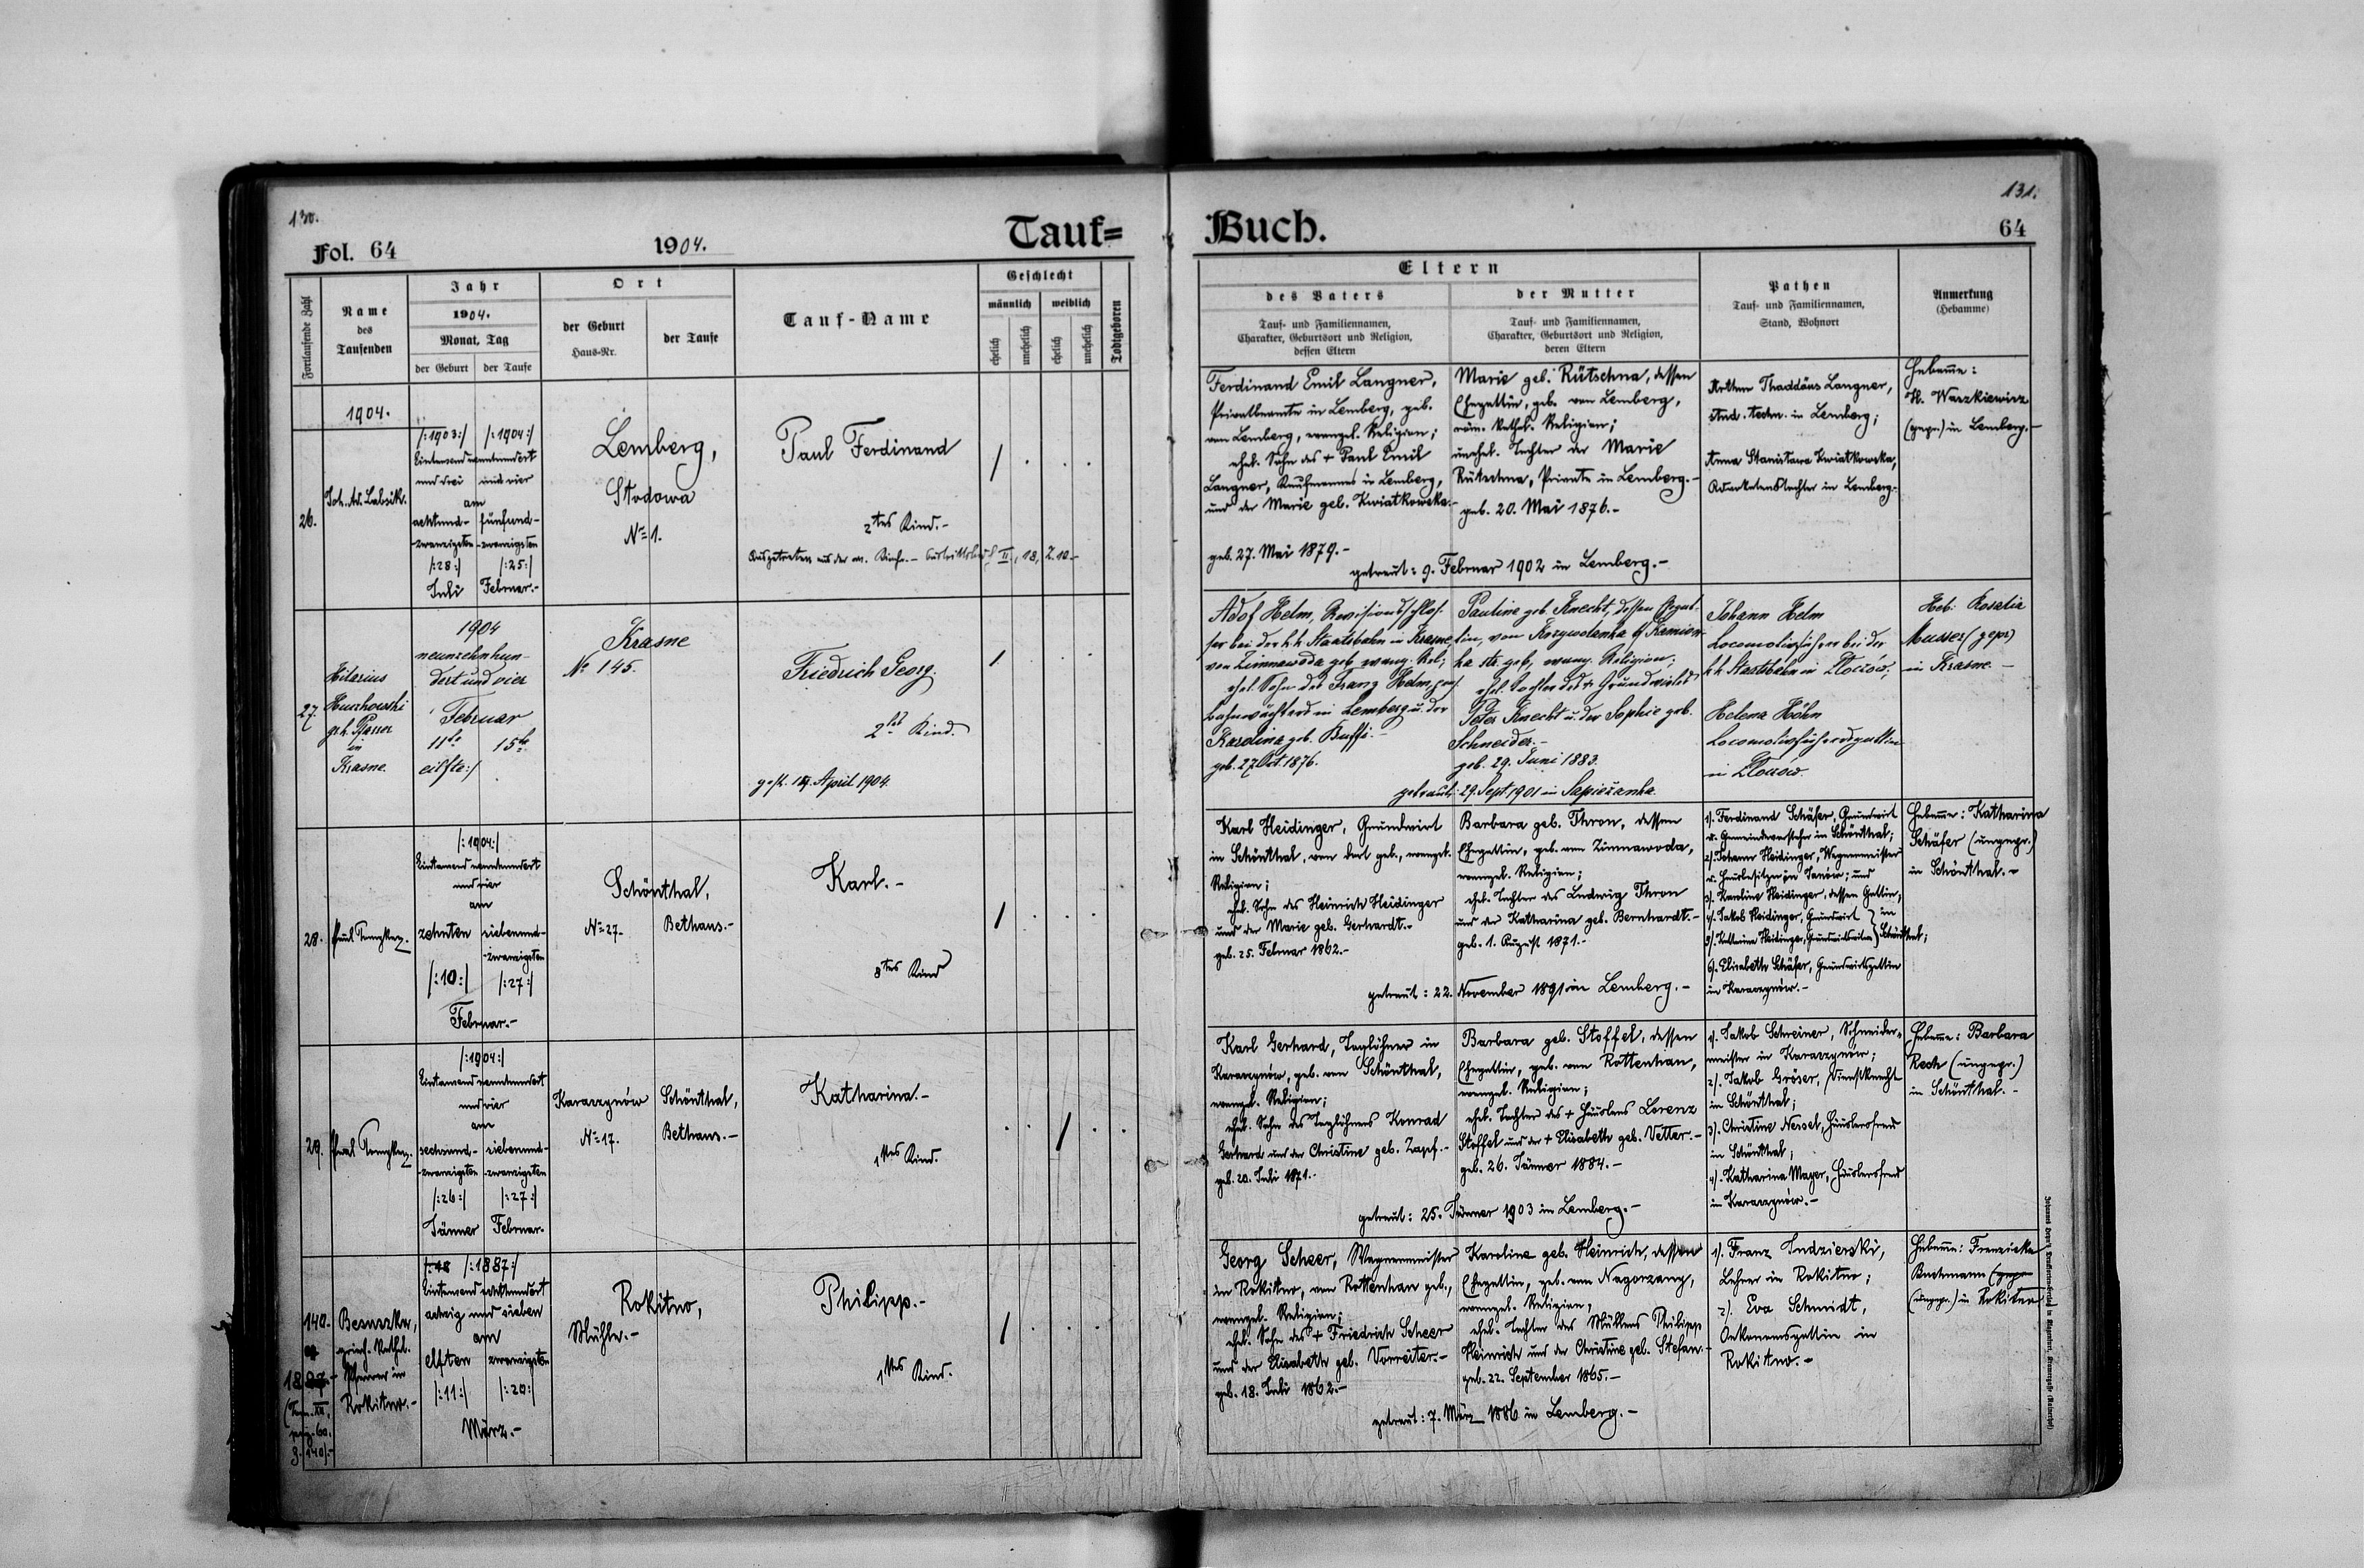 130.
Fol. 64
1904.
Tauf=
Fortlaufende Zahl
Name
des
Taufenden
Jahr
1904.
Monat, Tag
der Geburt
der Taufe
Ort
der Geburt
Haus-Nr.
der Taufe
Tauf-Name
Geschlecht
männlich
weiblich
ehelich
unehelich
ehelich
unehelich
Todtgeboren
1904.
26.
Joh. Ad. Labsik.
/:1903:/ /:1904:/
Eintausend neunhundert
und drei und vier
am
achtund- fünfund-
-zwanzigsten -zwanzigsten
/:28:/ /:25:/
Juli Februar.-
Lemberg,
Stodowa
No 1.
Paul Ferdinand
2tes Kind.-
27.
Hilarius
in
Krasne.
1904
neunzehnhun-
dert und vier
Februar
11te 15te
eilfte:/
Krasne
No 145.
Friedrich Georg.
2tes Kind.
April 1904.
28.
/:1904:/
Eintausend neunhundert
und vier
am
zehnten siebenund-
-zwanzigsten
/:10:/ /:27:/
Februar.-
Schönthal,
No 27. Bethaus.-
Karl.-
8tes Kind
29.
/:1904:/
Eintausend neunhundert
und vier
am
sechsund- siebenund-
-zwanzigsten -zwanzigsten
/:26:/ /:27:/
Jänner Februar.
Karaczynów Schönthal,
No 17. Bethaus.-
Katharina.-
1tes Kind.
140.
griech. kathol.
Pfarrer in
Rokitno.-
/:1887:/
Eintausend achthundert
achzig und sieben
am
elften zwanzigsten
/:11:/ /:20:/
März.-
Rokitno,
Mühle.-
Philipp.-
1tes Kind.
131.
Buch.
64
Eltern
des Vaters
Tauf- und Familiennamen,
Charakter, Geburtsort und Religion,
dessen Eltern
der Mutter
Tauf- und Familiennamen,
Charakter, Geburtsort und Religion,
deren Eltern
Pathen
Tauf- und Familiennamen,
Stand, Wohnort
Anmerkung
(Hebamme)
Ferdinand Emil Langner,
Privatbeamte in Lemberg, geb.
von Lemberg, evangel. Religion;
ehel. Sohn des + Paul Emil
Langner, Kaufmannes in Lemberg,
und der Marie geb. Kwiatkowska.-
geb. 27. Mai 1879.-
Marie geb. Rütschna, dessen
Ehegattin, geb. von Lemberg,
röm. kathol. Religion;
unehel. Tochter der Marie
Rütschna, Private in Lemberg.-
geb. 20. Mai 1876.-
getraut: 9. Februar 1902 in Lemberg.-
Arthur Thaddäus Langner,
stud. techn. in Lemberg;
Anna Stanisława Kwiatkowska,
Advokatenstochter in Lemberg.-
Hebamme:
H. Warzkiewicz
(gepr.) in Lemberg.-
Adolf Helm, Revisionsschlos-
ser bei der k.k. Staatsbahn in Krasne,
von Zimnawoda geb. evang. Rel.;
ehel. Sohn des Franz Helm, pens.
Bahnwächters in Lemberg u. der
Karolina geb. Buffi.-
geb. 27 Oct. 1876.
Pauline geb. Knecht, dessen Ehegat-
tin, von
geb, evang. Religion;
ehel. Tochter des + Grundwirtes
Peter Knecht u. der Sophie geb.
Schneider.-
geb. 29. Juni 1883.
getraut: 29. Sept. 1901 in Sapieżanka.
Johann Helm
Locomotivführer bei der
k.k. Staatsbahn in Złoczów;
Helena Höhn
Locomotivführersgattin
in Złoczow.
Heb: Rosalia
Musser (gepr)
in Krasne.-
Karl Heidinger, Grundwirt
in Schönthal, von dort geb., evangel.
Religion;
ehel. Sohn des Heinrich Heidinger
und der Marie geb. Gerhardt.-
geb. 25. Februar 1862.-
Barbara geb. Thron, dessen
Ehegattin, geb. von Zimnawoda,
evangel. Religion;
ehel. Tochter des Ludwig Thron
und der Katharina geb. Bernhardt.-
geb. 1. August 1871.-
getraut: 22. November 1891 in Lemberg.-
1). Ferdinand Schäfer, Grundwirt
u. Gemeindevorsteher in Schönthal;
2). Johann Heidinger, Wagnermeister
u. Hausbesitzer in Janów; und
3). Karoline Heidinger, dessen Gattin;
4). Jakob Heidinger, Grundwirt } in
5). Katharina Heidinger, } Schönthal;
6). Elisabeth Schäfer, Grundwirtsgattin
in Karaczynów.-
Hebamme: Katharina
Schäfer (ungepr.)
in Schönthal.-
Karl Gerhard, Taglöhner in
Karaczynów, geb. von Schönthal,
evangel. Religion;
ehel. Sohn des Taglöhners Konrad
Gerhard und der Christine geb. Zapf.-
geb. 20. Juli 1871.-
Barbara geb. Stoffel, dessen
Ehegattin, geb. von Rottenhan,
evangel. Religion;
ehel. Tochter des + Häuslers Lorenz
Stoffel und der + Elisabeth geb. Vetter.-
geb. 26. Jänner 1884.-
getraut: 25. Jänner 1903 in Lemberg.-
1). Jakob Schreiner, Schneider-
meister in Karaczynów;
2). Jakob Gröser, Dienstknecht
in Schönthal;
3). Christine Nessel, Häuslersfrau
in Schönthal;
4). Katharina Mayer, Häuslersfrau
in Karaczynów.-
Hebamme: Barbara
Rech (ungepr.)
in Schönthal.-
Georg Scheer, Wagnermeister
in Rokitno, von Rottenhan geb.,
evangel. Religion;
ehel. Sohn des + Friedrich Scheer
und der Elisabeth geb. Vorreiter.-
geb. 18. Juli 1862.-
Karoline geb. Heinrich, dessen
Ehegattin, geb. von Nagorzany,
evangel. Religion,
ehel. Tochter des Müllers Philipp
Heinrich und der Christine geb. Stefan.-
geb. 22. September 1865.-
getraut: 7. März 1886 in Lemberg.-
1). Franz Indzierski,
Lehrer in Rokitno;
2). Eva Schmidt,
Oekonomsgattin in
Rokitno.-
Hebamme: Franziska
Buchmann (gepr
(ungepr.) in Rokitno